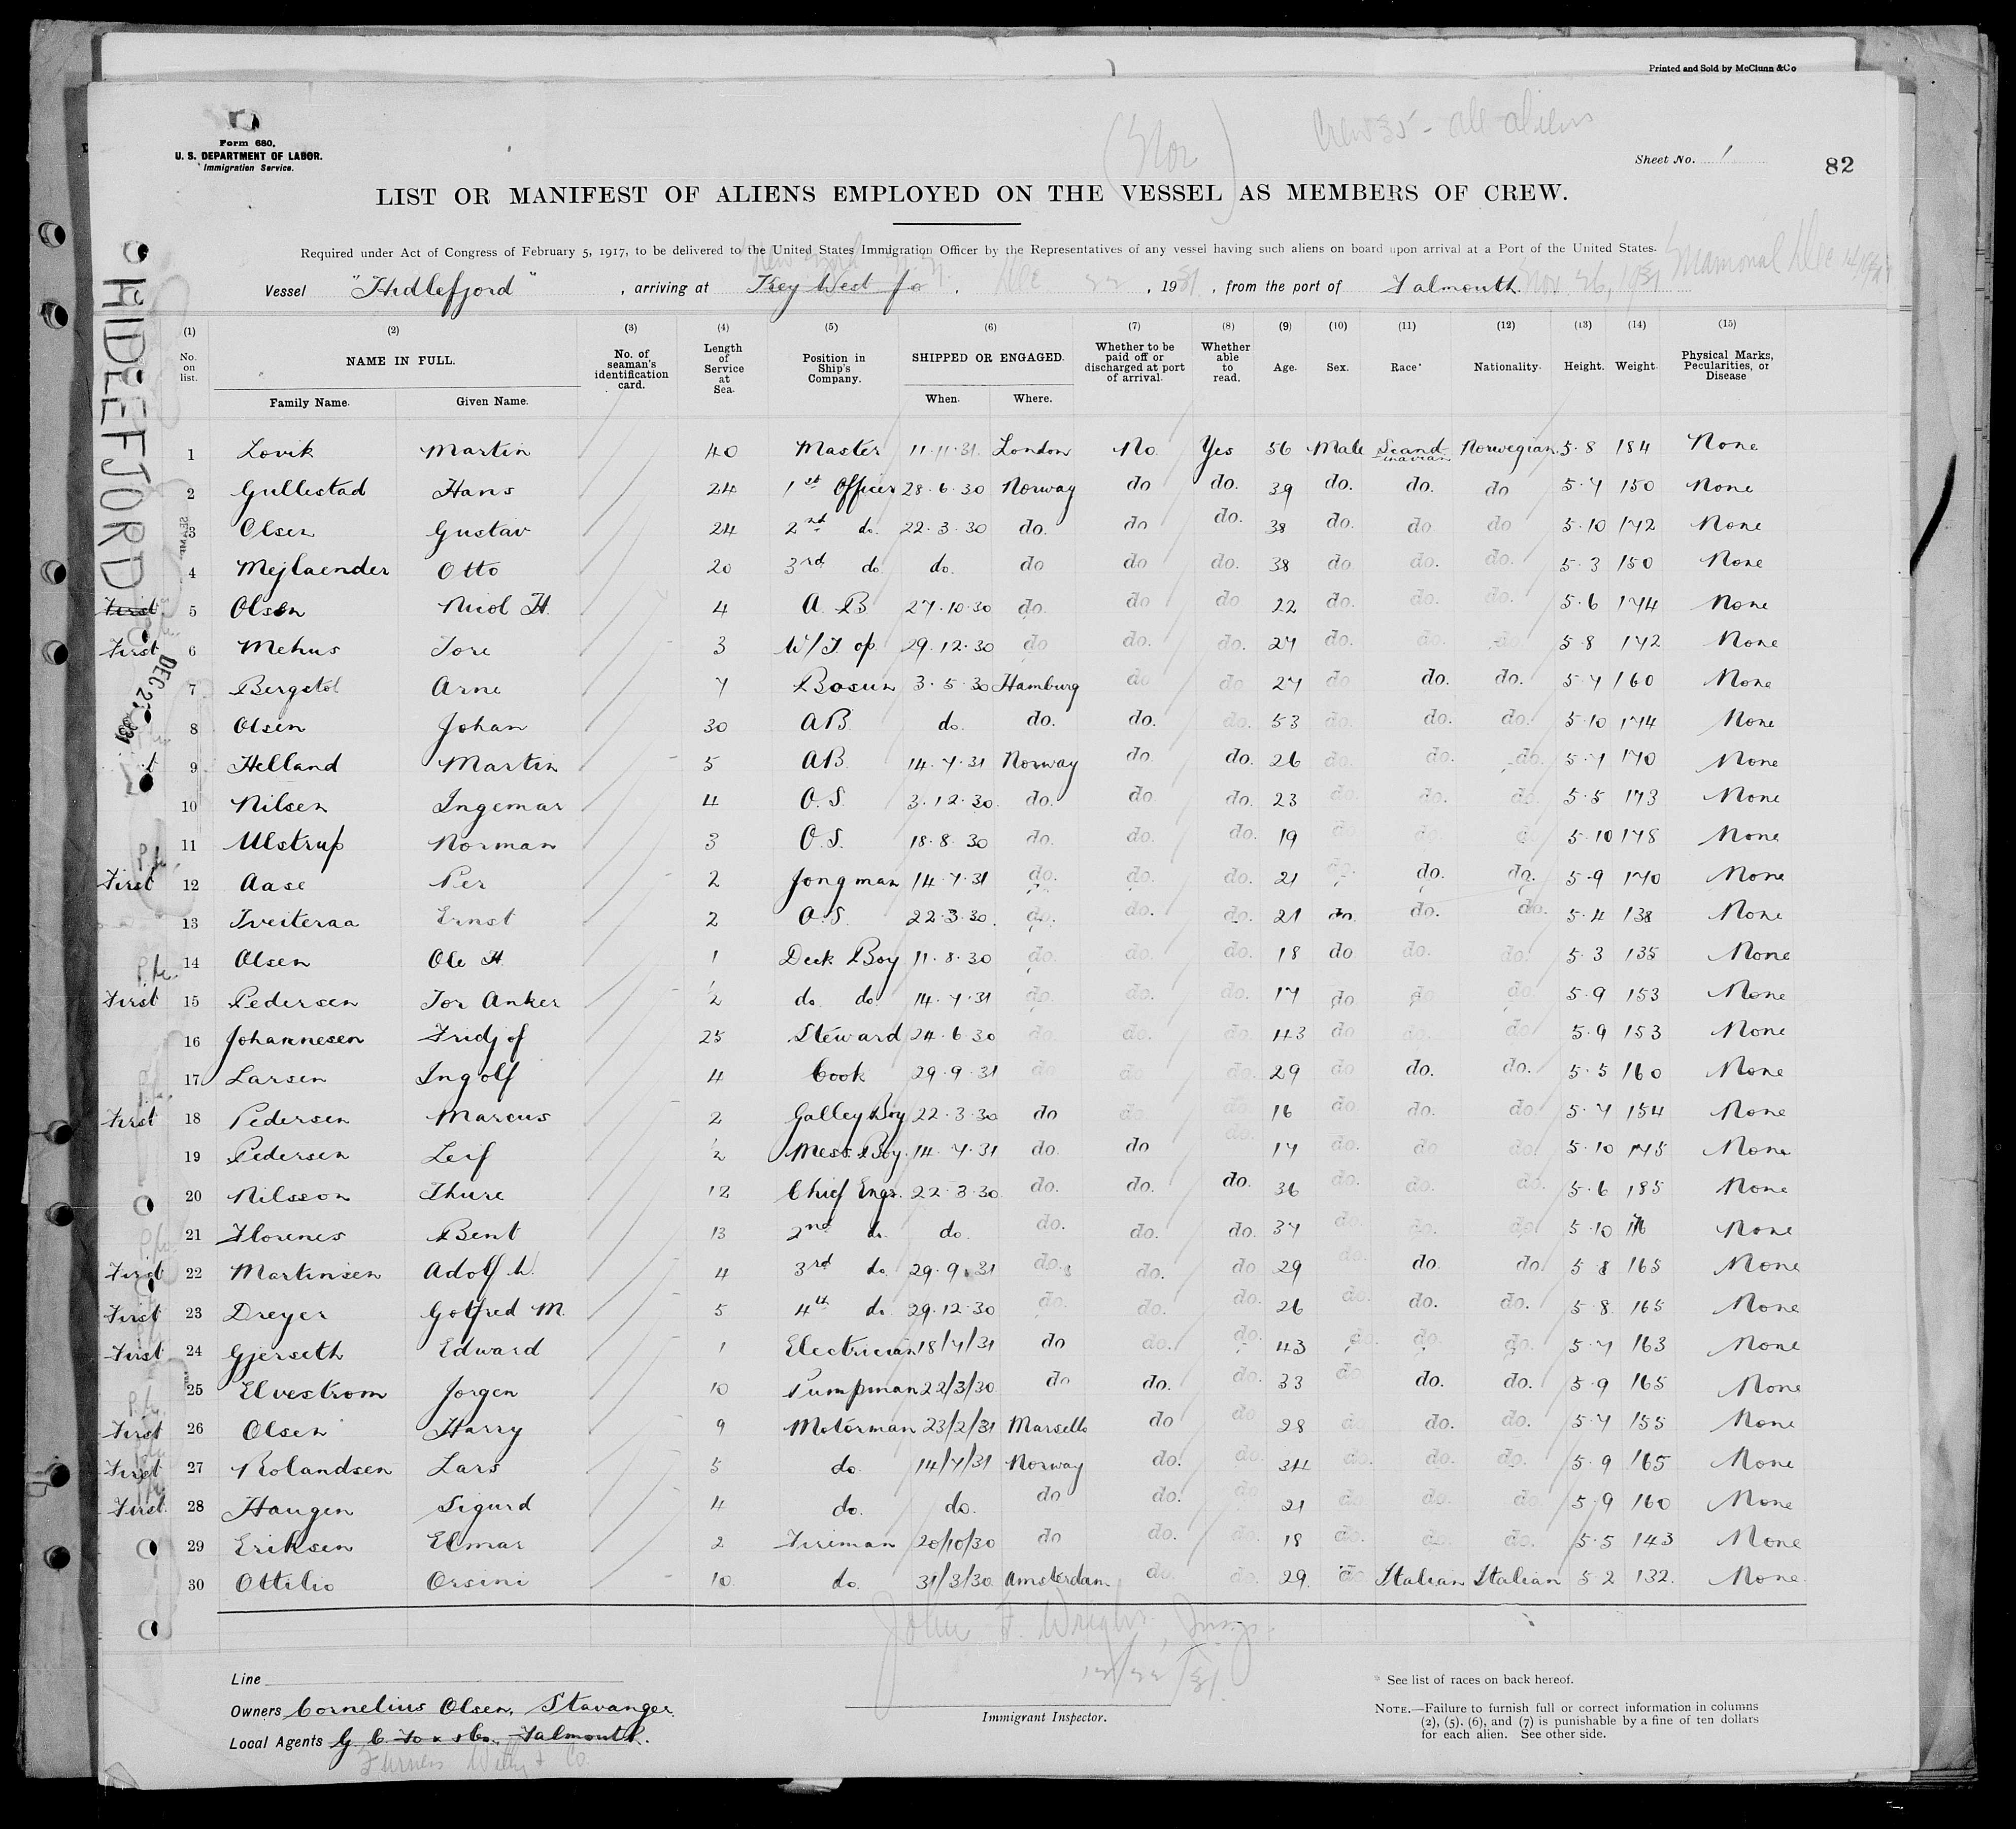 Printed and Sold by McClunn & Co
(Nor)
Crew 35 - all aliens
Form 680,
U. S. DEPARTMENT OF LABOR.
Immigration Service.
Sheet No. 1
82
LIST OR MANIFEST OF ALIENS EMPLOYED ON THE VESSEL AS MEMBERS OF CREW.
Required under Act of Congress of February 5, 1917, to be delivered to the United States Immigration Officer by the Representatives of any vessel having such aliens on board upon arrival at a Port of the United States.
Vessel "Hidlefjord", arriving at Key West fo, Dec 22, 1931, from the port of Falmouth Nov. 26, 1931
HIDLEFJORD
(1) (2) (3) (4) (5) (6) (7) (8) (9) (10) (11) (12) (13) (14) (15)
No. on list. NAME IN FULL. No. of seaman's identification card. Length of Service at Sea. Position in Ship's Company. SHIPPED OR ENGAGED. Whether to be paid off or discharged at port of arrival. Whether able to read. Age. Sex. Race* Nationality. Height. Weight. Physical Marks, Pecularities, or Disease
Family Name. Given Name. When. Where.
1 Lovik Martin 40 Master 11.11.31. London No Yes 56 Male Scandinavian Norwegian 5.8 184 None
2 Gullestad Hans 24 1st Officer 28.6.30 Norway do do. 39 do. do. do 5.7 150 None
3 Olsen Gustav 24 2nd do. 22.3.30 do. do do. 38 do. do do 5.10 172 None
4 Mejlaender Otto 20 3rd do. do. do do do. 38 do do. do. 5.3 150 None
First 5 Olsen Nicol H. 4 A.B 27.10.30 do. do do 22 do. do. do. 5.6 174 None
First 6 Mehus Tore 3 W/T. op. 29.12.30 do do. do. 27 do. do. do 5.8 172 None
7 Bergstol Arne 7 Bosun 3.5.30 Hamburg do do 27 do do. do. 5.7 160 None
8 Olsen Johan 30 AB do. do. do. do. 53 do. do. do. 5.10 174 None
9 Helland Martin 5 AB. 14.7.31 Norway do. do. 26 do. do. do. 5.7 170 None
10 Nilsen Ingemar 4 O.S. 3.12.30. do. do do. 23 do. do. do. 5.5 173 None
11 Ulstrup Norman 3 O.S. 18.8.30 do. do. do. 19 do. do. do 5.10 178 None
First 12 Aase Per 2 Jongman 14.7.31 do. do. do. 21 do. do. 5.9 170 None
13 Tveiteraa Ernst 2 O.S. 22.3.30. do. do. do. 21 do. do. do. 5.4 138 None
14 Olsen Ole H. 1 Deck Boy 11.8.30 do. do do. 18 do do. do. 5.3 135 None
First 15 Pedersen Tor Anker ½ do do 14.7.31 do. do. do. 17 do do do 5.9 153 None
16 Johannesen Fridjof 25 Steward 24.6.30 do do. do. 43 do do. do 5.9 153 None
17 Larsen Ingolf 4 Cook 29.9.31 do do do. 29 do do. do. 5.5 160 None
First 18 Pedersen Marcus 2 Galley Boy 22.3.30 do do. do 16 do do. do 5.7 154 None
19 Pedersen Leif ½ Mess Boy. 14.7.31 do. do do. 17 do. do do. 5.10 145 None
20 Nilsson Thure 12 Chief Engr. 22.3.30. do. do. do. 36 do. do. do. 5.6 185 None
21 Florenes Bent 13 2nd do. do. do. do. do. 37 do do. do 5.10 None
First 22 Martinsen Adolf 4 3rd do. 29.9.31 do. do. do 29 do. do. do 5.8 165 None
First 23 Dreyer Gotfred M. 5 4th do. 29.12.30 do. do. do. 26 do. do. do. 5.8. 165 None
First 24 Gjerseth Edward 1 Electrician 18/7/31 do do. do. 43 do. do. do. 5.7 163 None
25 Elvestrom Jorgen 10 Pumpman 22/3/30 do do. do. 33 do do. do. 5.9 165 None
First 26 Olsen Harry 9 Motorman 23/2/31 Marsells do do 28 do do. do. 5.7 155 None
First 27 Rolandsen Lars 5 do. 14/7/31 Norway do. do. 34 do. do. do. 5.9 165 None
First. 28 Haugen Sigurd 4 do. do. do do. do 21 do do. do 5.9 160 None
29 Eriksen Elmar 2 Fireman 20/10/30 do do. do. 18 do. do. do. 5.5 143 None
30 Ottilio Orsini 10 do. 31/3/30 Amsterdam. do. do. 29. do Italian Italian 5.2 132. None
John F. Wright, Insp.
12/22/31.
Line
Owners Cornelius Olsen, Stavanger.
Local Agents G. C. Fox & Co. Falmouth.
Furness Withy & Co.
Immigrant Inspector.
* See list of races on back hereof.
NOTE.—Failure to furnish full or correct information in columns
(2), (5), (6), and (7) is punishable by a fine of ten dollars
for each alien. See other side.